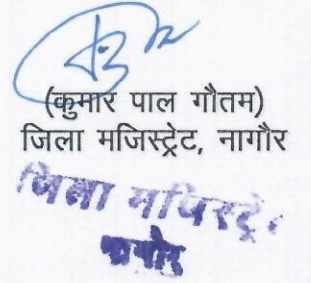 (कुमार पाल गौतम)
जिला मजिस्ट्रेट, नागौर
जिला मजिस्ट्रेट
नागौर